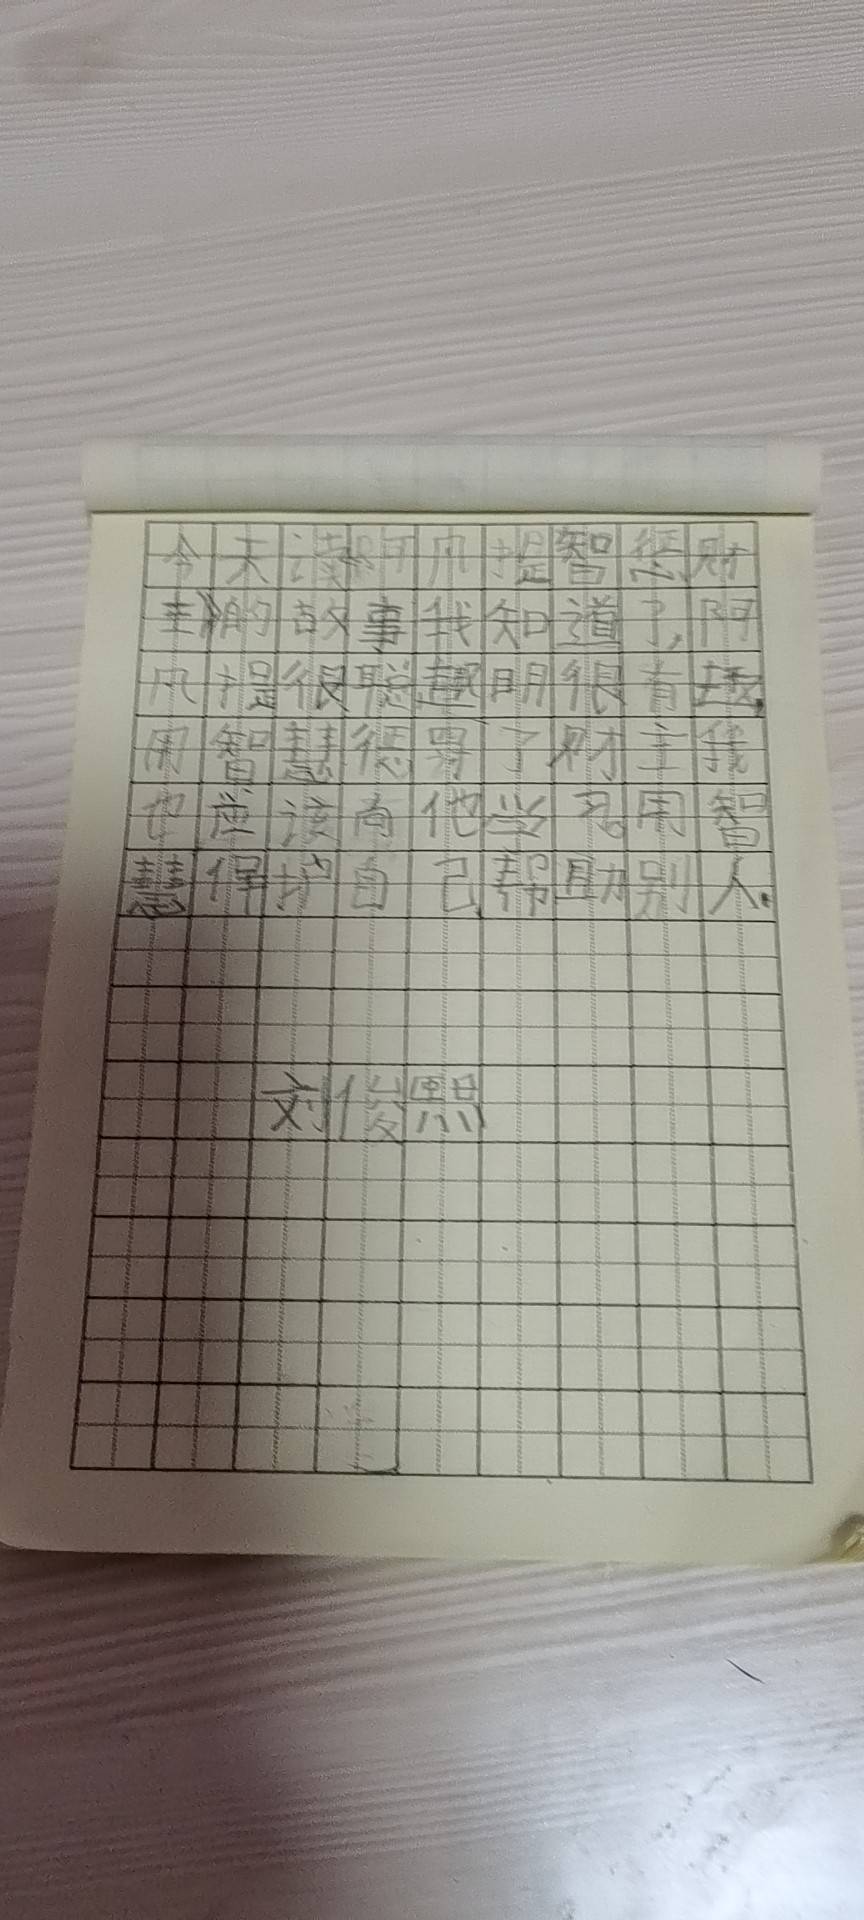 今天读阿凡提智惩财
主的故事我知道了,阿
凡提很聪明很有
用智慧惩罚了财主我
也应该向他学习。用智
慧保护自己帮助别人.
刘俊熙